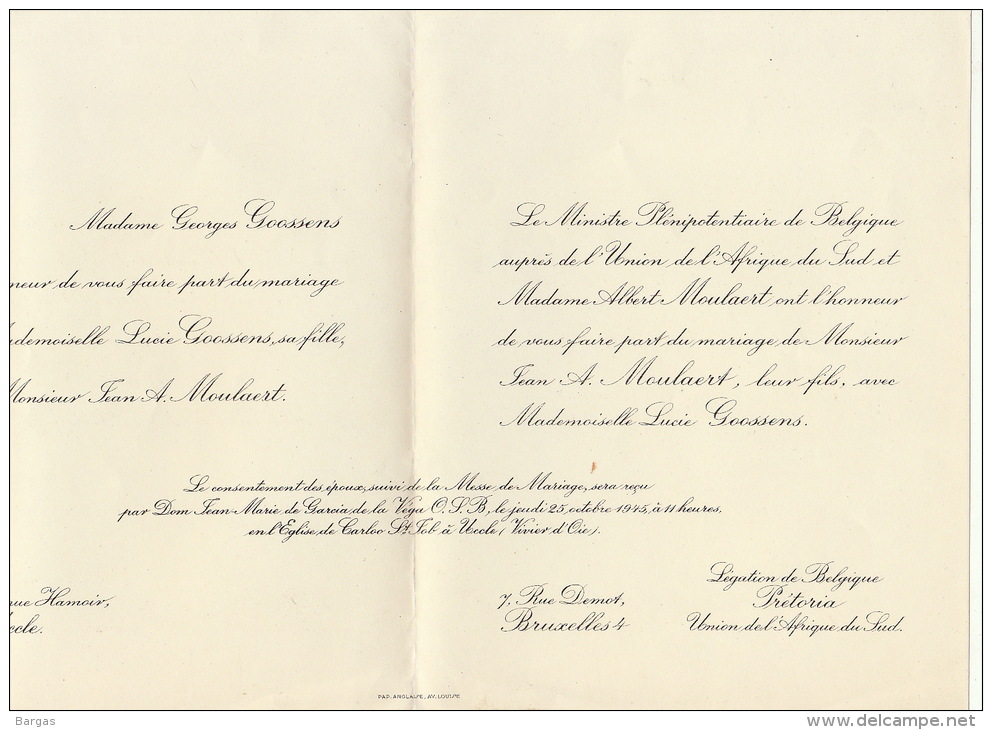 Madame Georges Goossens
neur de vous faire part du mariage
demoiselle Lucie Goossens, sa fille,
Monsieur Jean A. Moulaert.
Le Ministre Plénipotentiaire de Belgique
auprès de l'Union de l'Afrique du Sud et
Madame Albert Moulaert ont l'honneur
de vous faire part du mariage de Monsieur
Jean A. Moulaert, leur fils, avec
Mademoiselle Lucie Goossens.
Le consentement des époux, suivi de la Messe de Mariage, sera reçu
par Dom Jean-Marie de Garcia de la Véga O.S.B, le jeudi 25 octobre 1945, à 11 heures,
en l'Eglise de Carloo St. Job à Uccle (Vivier d'Oie).
nue Hamoir,
ccle.
7, Rue Demot,
Bruxelles 4
Légation de Belgique
Prétoria
Union de l'Afrique du Sud.
PAP. ANGLAISE, AV. LOUISE
Bargas
www.delcampe.net